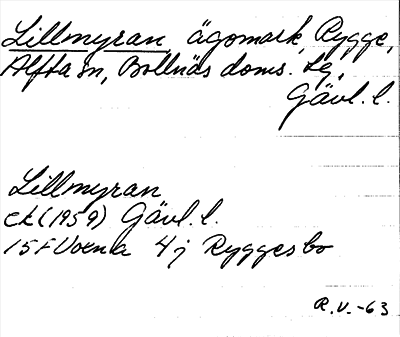 Lillmyran ägomark, Rygge,
Alfta sn, Bollnäs doms. tg,
Gävl. l.
Lillmyran
ek (1959) Gävl. l.
15F Voxna 4j Ryggesbo
R.V.-63